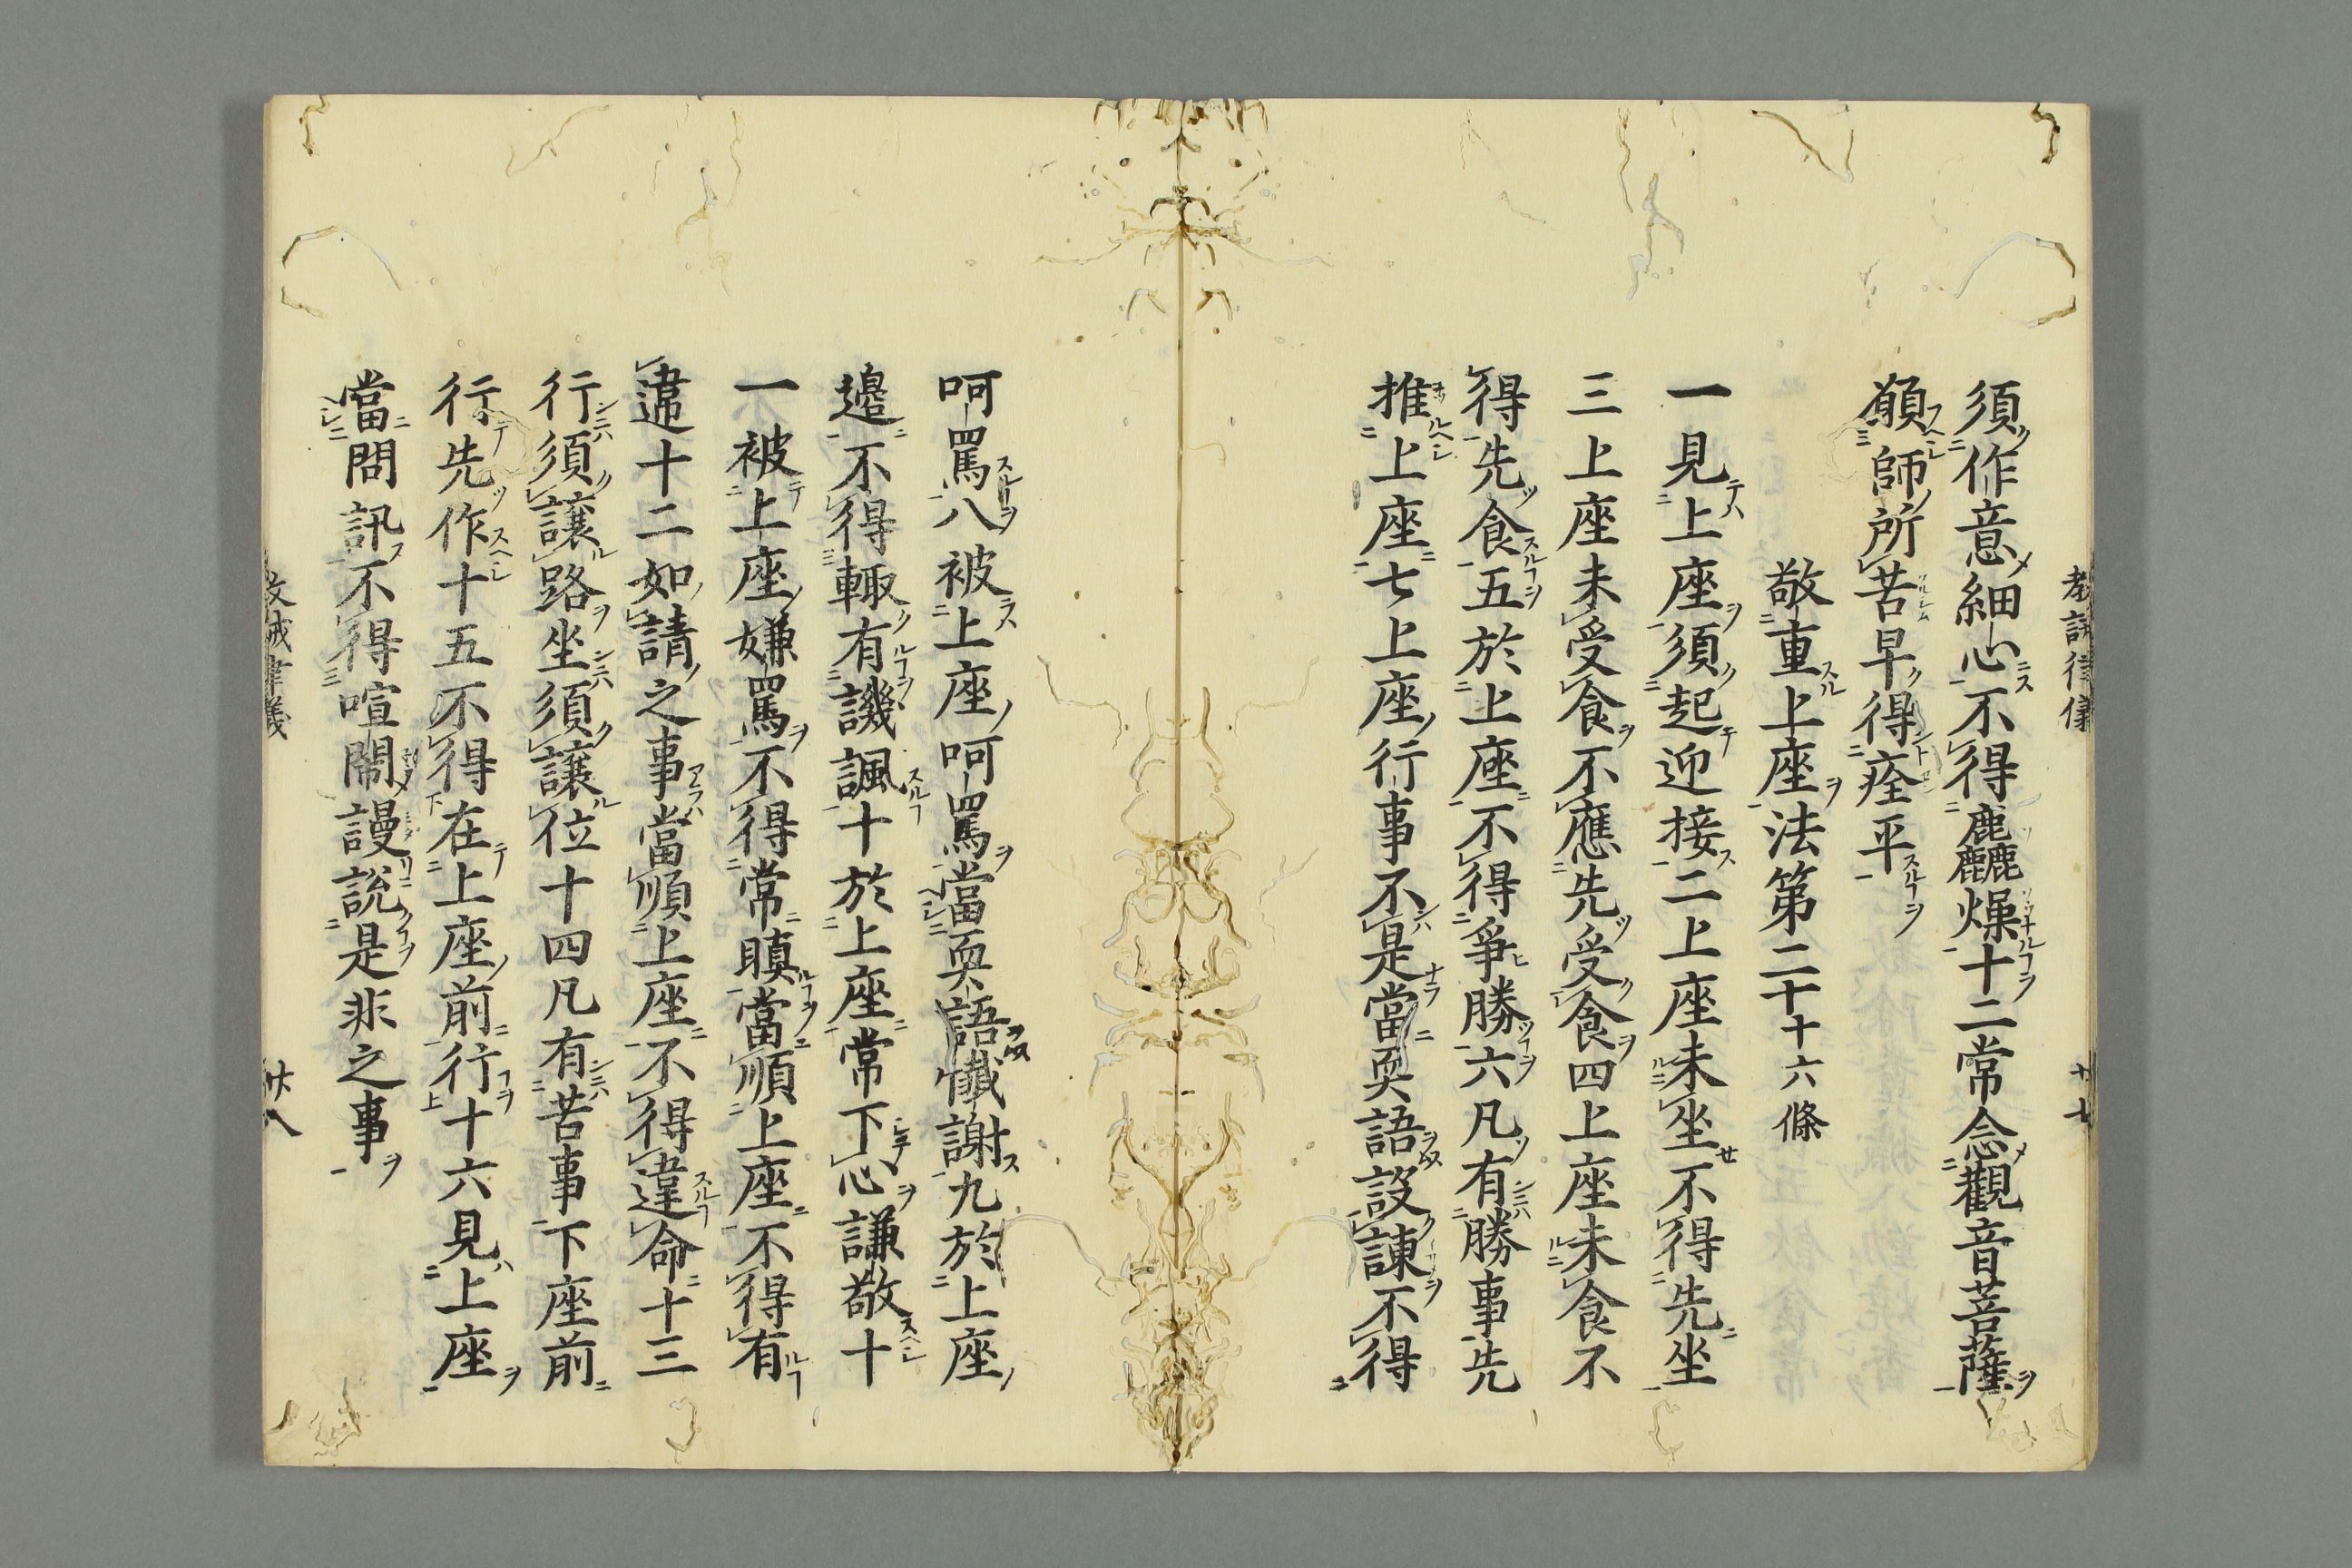 須作意細心不得麤燥十二常念觀音菩薩
願師所苦早得痊平
敬重上座法第二十十六條
一見上座須起迎接二上座未坐不得先坐
三上座未受食不應先受食四上座未食不
得先食五於上座不得爭勝六凡有勝事先
推上座七上座行事不是當耎語設諫不得
呵罵八被上座呵罵當耎語懺謝九於上座
邊不得輙有譏諷十於上座常下心謙敬十
一被上座嫌罵不得常瞋當順上座不得有
違十二如請之事當順上座不得違命十三
行須讓路坐須讓位十四凡有苦事下座前
行先作十五不得在上座前行十六見上座
當問訊不得喧鬧謾說是非之事